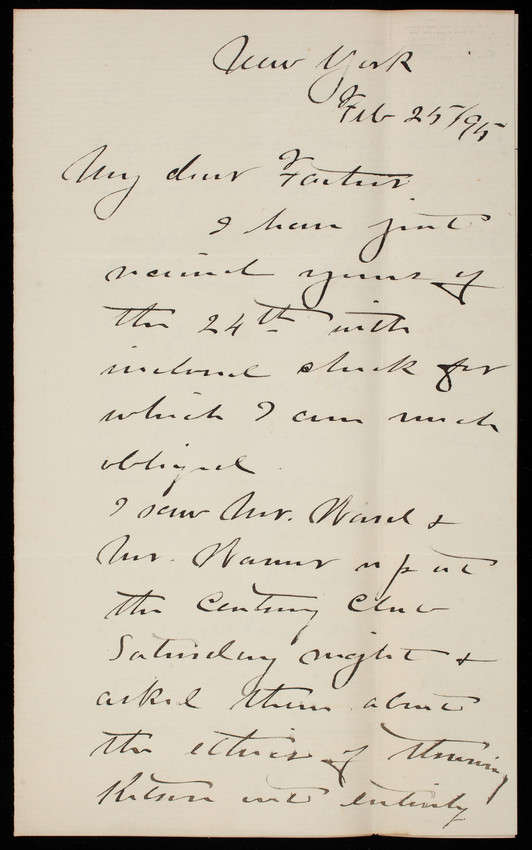 New York
Feb 25/95
My dear Father
I have just
received yours of
the 24th with
inclosed check for
which I am much
obliged.
I saw Mr. Ward &
Mr. Warner up at
the Century Club
Saturday night &
asked them about
the ethics of throwing
Kitson out entirely